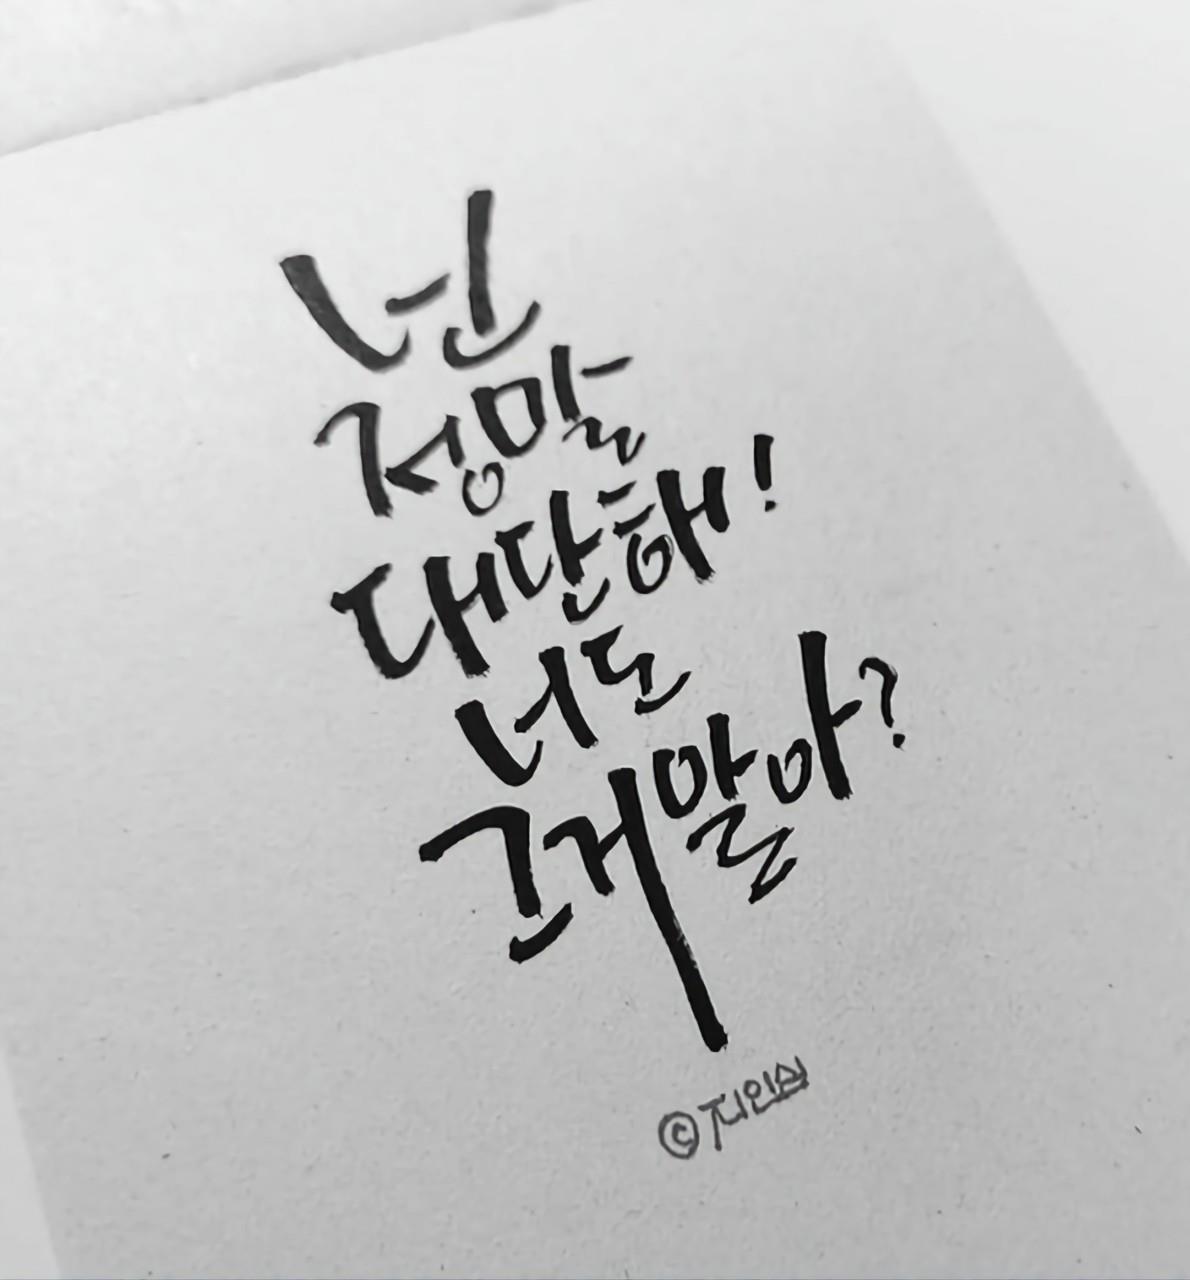 넌
정말
대단해!
너도
그거 알아?
©